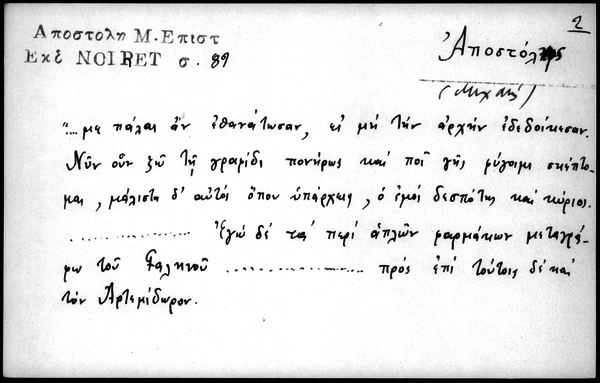 2
Αποστολη Μ. Επιστ
Εκδ NOIRET σ. 89
Ἀποστόλης
(Μιχαήλ)
"... με πάλαι ἄν ἐθανάτωσαν, εἰ μή τήν ἀρχήν ἐδεδοίκεσαν.
Νῦν οὖν ζῶ τῇ γραφίδι πονήρως καί ποῖ γῆς φύγοιμι σκέπτο-
μαι, μάλιστα δ' αὐτοί ὅπου ὑπάρχεις, ὁ ἐμοί δεσπότης καί κύριος.
................ Ἐγώ δέ τά περί ἁπλῶν φαρμάκων μεταγρά-
φω τοῦ Γαληνοῦ .................... πρός ἐπί τούτοις δέ καί
τόν Ἀρτεμίδωρον.